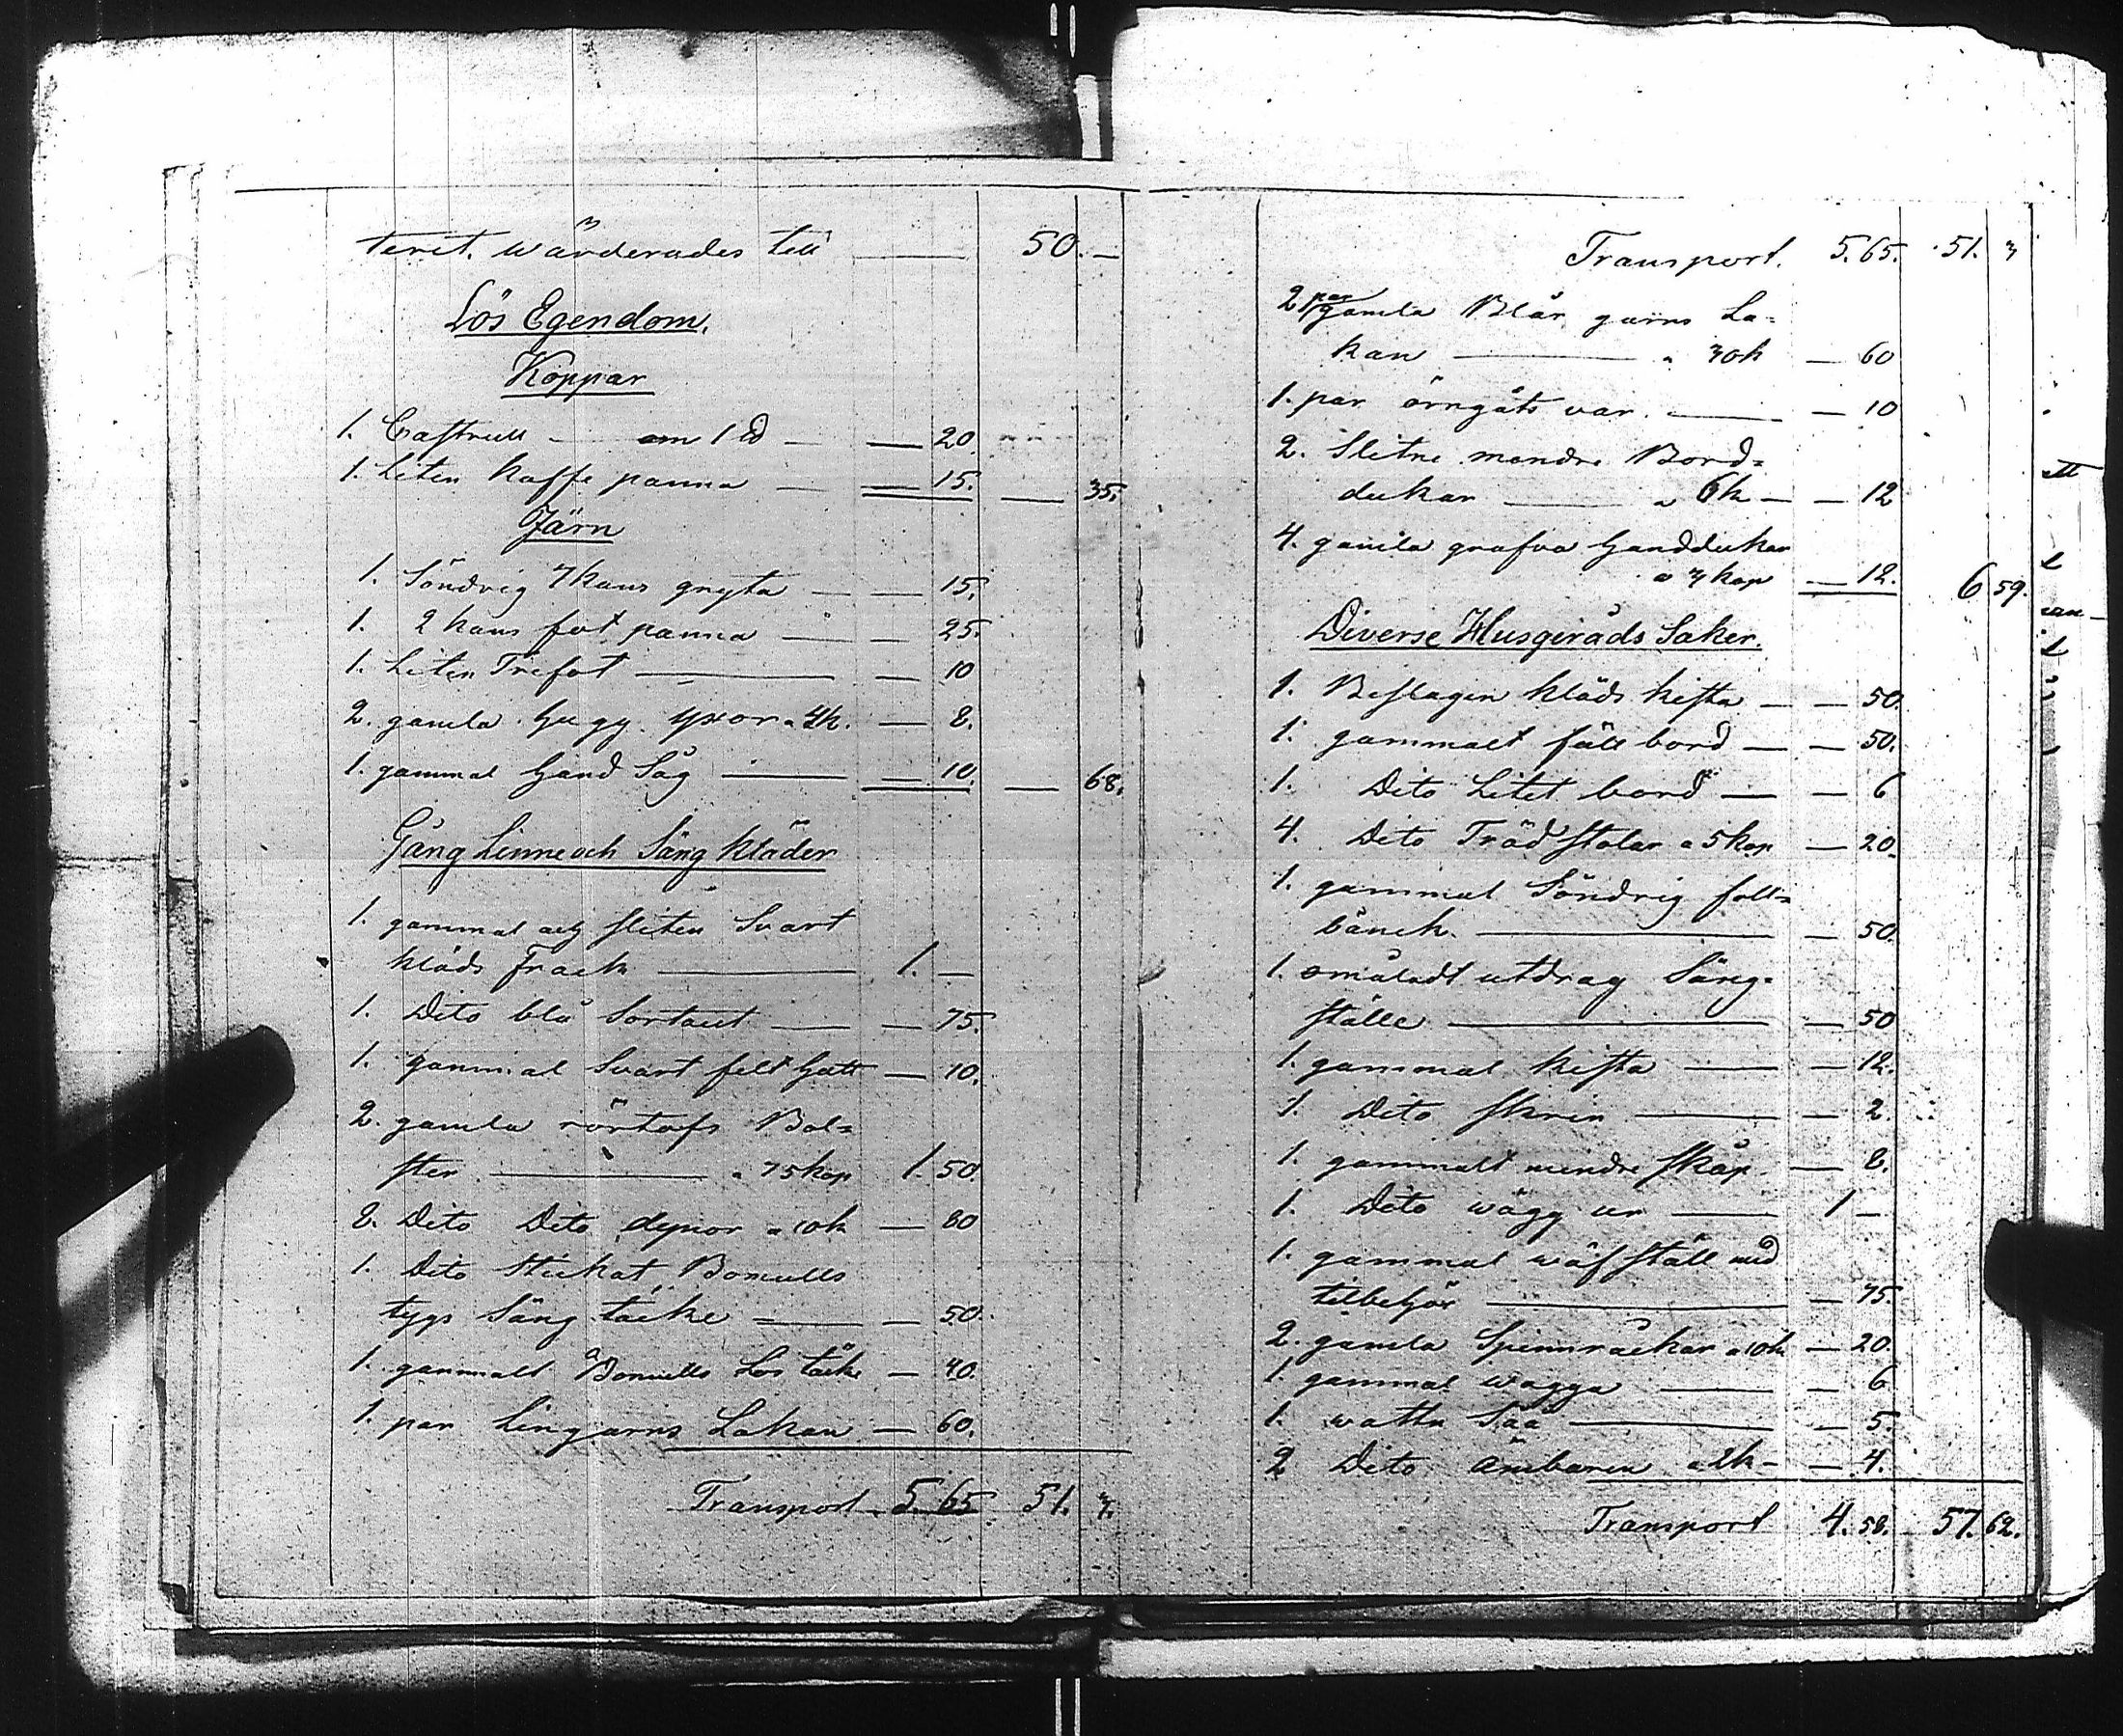 teret. wärderades till — 50. —
Lös Egendom.
Koppar
1. Castrull — om 1 ℔ — — 20.
1. Liten kaffe panna — — 15. — 35.
Järn
1. Söndrig 7 kans gryta — — 15.
1. 2 kans fot panna — — 25.
1. Liten Trefot — — 10
2. gamla Hugg yxor a 4k. — 8.
1. gammal Hand Såg — — 10. — 68.
Gång Linne och Säng kläder
1. gammal och sliten Svart
kläds Frack — 1. —
1. Dito blå Sortout — — 75.
1. gammal Svart felt Hatt — 10.
2. gamla Bol=
ster — a 75 kop 1. 50.
8. Dito Dito dynor a 10k — 80
1. Dito Stickat Bomulls
tygs Säng täcke — — 50.
1. gammalt Bomulls Lös täcke — 40.
1. par Lingarns Lakan — 60.
Transport 5. 65 51. 3.
Transport. 5. 65. 51. 3
2 par gamla Blår garns La=
kan — a 30k — 60
1. par örngåts var. — — 10
2. Slitne mindre Bord=
dukar — a 6k — — 12
4. gamla grofva Handdukar
a 3 kop — 12. 6 59.
Diverse Husgeråds Saker.
1. Beslagen kläds kista — — 50.
1. gammalt fäll bord — — 50.
1. Dito Litet bord — — 6
4. Dito Träd stolar a 5 kop — 20.
1. gammal Söndrig soll=
bänck. — — 50.
1. omåladt utdrag Säng=
ställe — — 50
1. gammal kista — — 12.
1. Dito skrin — — 2.
1. gammalt mindre skåp. — 8.
1. Dito wägg ur — 1 —
1. gammal wäf ställ med
tilbehör — — 75.
2. gamla Spinnråckar a 10k — 20.
1. gammal wagga — — 6
1. wattu Såå — — 5.
2 Dito Ämbaren a 2k — — 4.
Transport 4. 58. 57. 62.